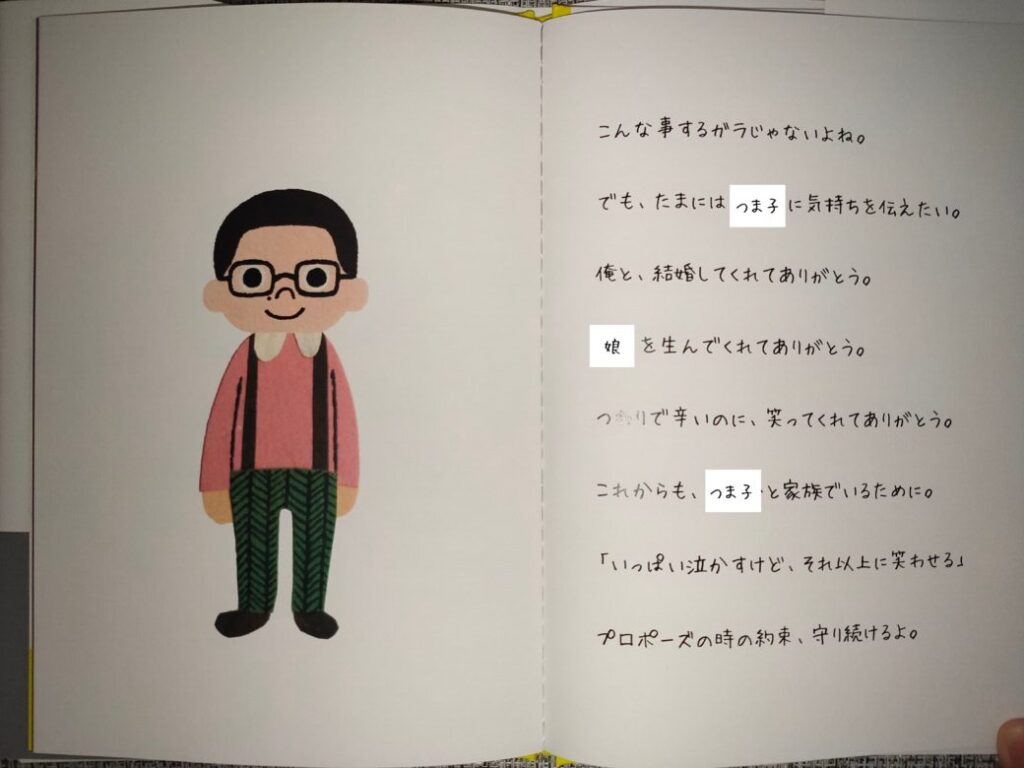 こんな事するガラじゃないよね。
でも、たまにはつま子に気持ちを伝えたい。
俺と、結婚してくれてありがとう。
娘を生んでくれてありがとう。
で辛いのに、笑ってくれてありがとう。
これからも、つま子と家族でいるために。
「いっぱい泣かすけど、それ以上に笑わせる」
プロポーズの時の約束、守り続けるよ。